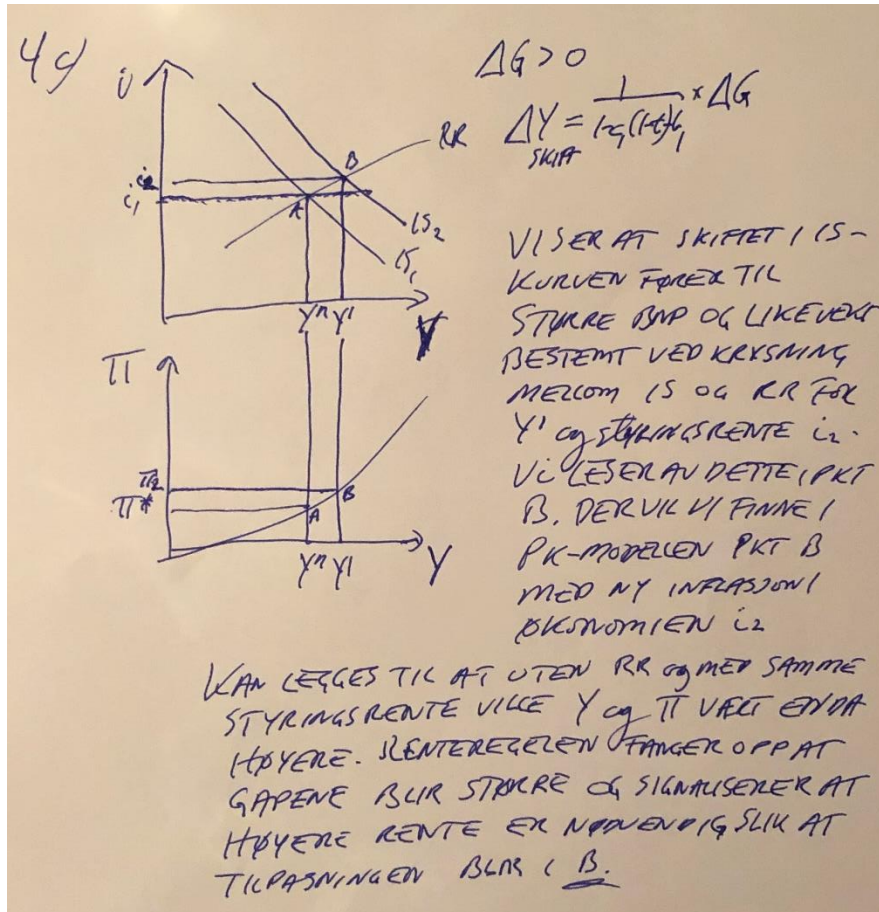 4c)
i
i₂
i₁
A
B
RR
IS₂
IS₁
Yⁿ Y'
Y
π
π₂
π*
A
B
Yⁿ Y'
Y
ΔG > 0
ΔY = 1 × ΔG
SKIFT 1-c₁(1-t)-b₁
VISER AT SKIFTET I IS-
KURVEN FØRER TIL
STØRRE BNP OG LIKEVEKT
BESTEMT VED KRYSNING
MELLOM IS OG RR FOR
Y' og STYRINGSRENTE i₂.
Vi LESER AV DETTE I PKT
B. DER VIL VI FINNE I
PK-MODELLEN PKT B
MED NY INFLASJON I
ØKONOMIEN i₂
KAN LEGGES TIL AT UTEN RR og MED SAMME
STYRINGSRENTE VILLE Y og π VÆRT ENDA
HØYERE. RENTEREGELEN FANGER OPP AT
GAPENE BLIR STØRRE OG SIGNALISERER AT
HØYERE RENTE ER NØDVENDIG SLIK AT
TILPASNINGEN BLIR I B.